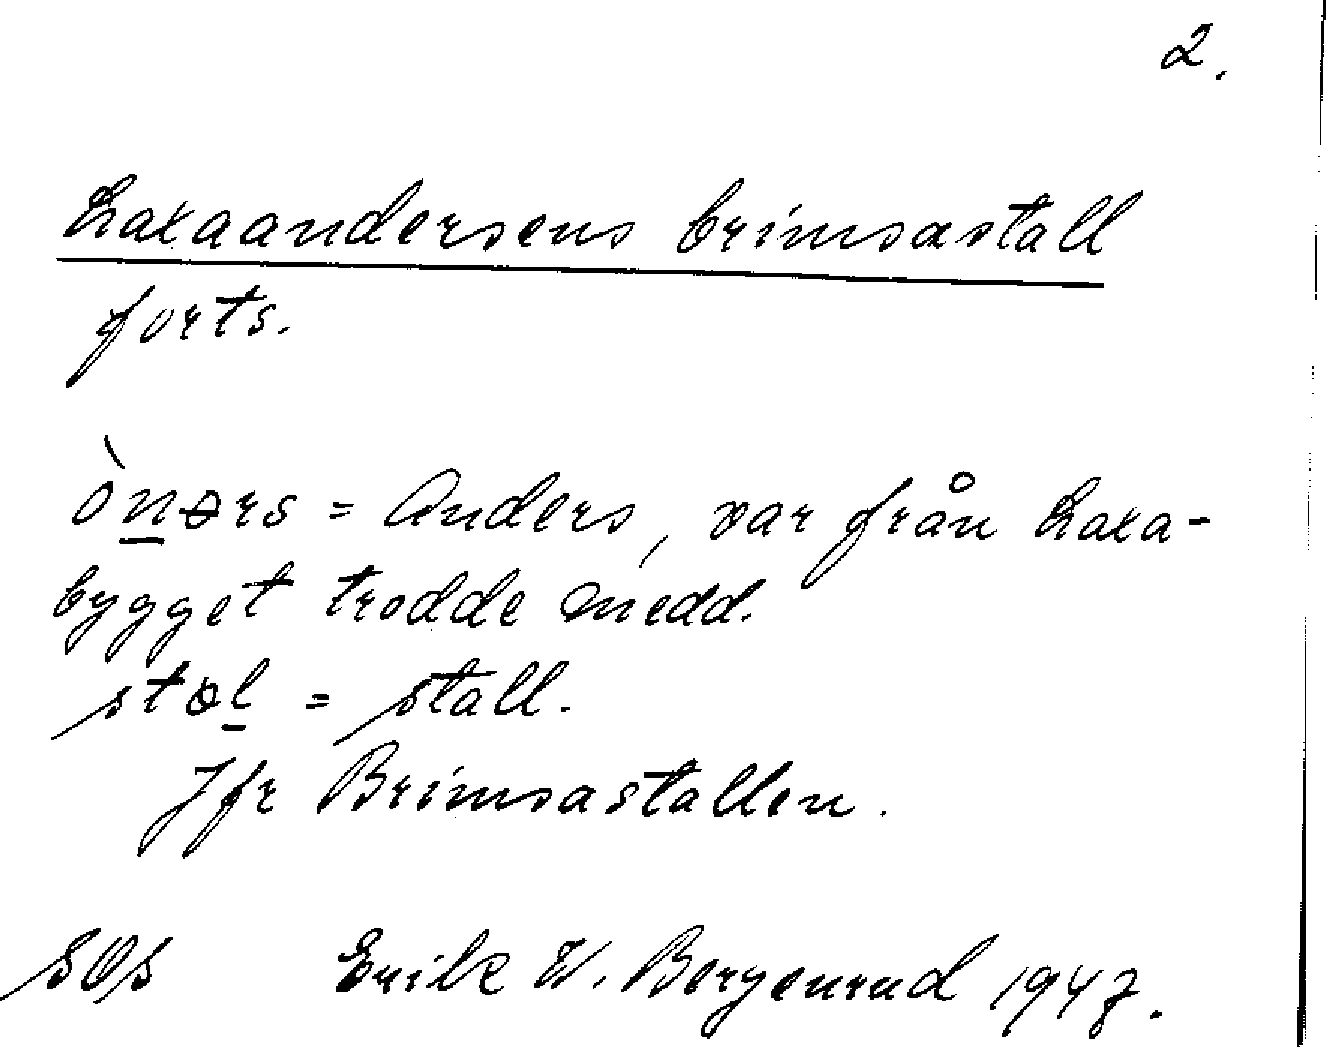 2.
Laxaandersens brimsastall
forts.
ònərs = Anders, var från Laxa-
bygget trodde medd.
stal = stall.
Jfr Brimsastallen.
SOS Erik W. Bergenrud 1947.